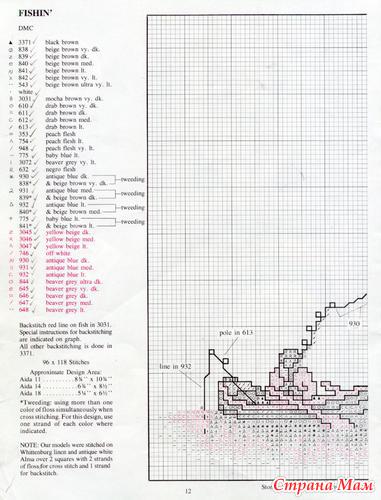 FISHIN'
DMC
3371 black brown
838 beige brown vy. dk.
839 beige brown dk.
840 beige brown med.
841 beige brown lt.
842 beige brown vy. lt.
543 beige brown ultra vy. lt.
white
3031 mocha brown vy. dk.
610 drab brown vy. dk.
611 drab brown dk.
612 drab brown med.
613 drab brown lt.
353 peach flesh
754 peach flesh lt.
948 peach flesh vy. lt.
775 baby blue lt.
3072 beaver grey vy. lt.
632 negro flesh
930 antique blue dk.
838* & beige brown vy. dk. tweeding
931 antique blue med.
839* & beige brown dk. tweeding
932 antique blue lt.
840* & beige brown med. tweeding
775 baby blue lt.
841* & beige brown lt. tweeding
3045 yellow beige dk.
3046 yellow beige med.
3047 yellow beige lt.
746 off white
930 antique blue dk.
931 antique blue med.
932 antique blue lt.
844 beaver grey ultra dk.
645 beaver grey vy. dk.
646 beaver grey dk.
647 beaver grey med.
648 beaver grey lt.
Backstitch red line on fish in 3031.
Special instructions for backstitching
are indicated on graph.
All other backstitching is done in
3371.
96 x 118 Stitches
Approximate Design Area:
Aida 11
Aida 14
Aida 18
*Tweeding: using more than one
color of floss simultaneously when
cross stitching. For this design, use
one strand of each color where
indicated.
NOTE: Our models were stitched on
Whittenburg linen and antique white
Alma over 2 squares with 2 strands
of floss for cross stitch and 1 strand
for backstitch.
930
pole in 613
line in 932
12
Страна Мам